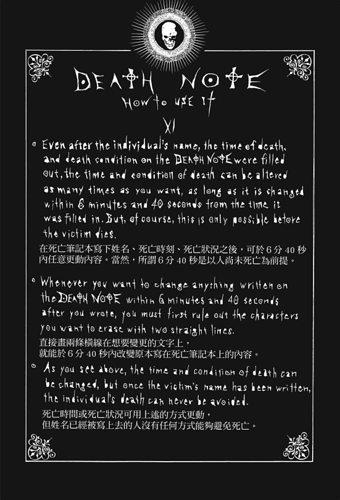 DEATH NOTE
HOW TO USE IT
XI
Even after the individual's name, the time of death,
and death condition on the DEATH NOTE were filled
out, the time and condition of death can be altered
as many times as you want, as long as it is changed
within 6 minutes and 40 seconds from the time it
was filled in. But, of course, this is only possible before
the victim dies.
在死亡筆記本寫下姓名、死亡時刻、死亡狀況之後，可於６分 40 秒
內任意更動內容。當然，所謂６分 40 秒是以人尚未死亡為前提。
Whenever you want to change anything written on
the DEATH NOTE within 6 minutes and 40 seconds
after you wrote, you must first rule out the characters
you want to erase with two straight lines.
直接畫兩條橫線在想要變更的文字上，
就能於６分 40 秒內改變原本寫在死亡筆記本上的內容。
As you see above, the time and condition of death can
be changed, but once the victim's name has been written,
the individual's death can never be avoided.
死亡時間或死亡狀況可用上述的方式更動，
但姓名已經被寫上去的人沒有任何方式能夠避免死亡。